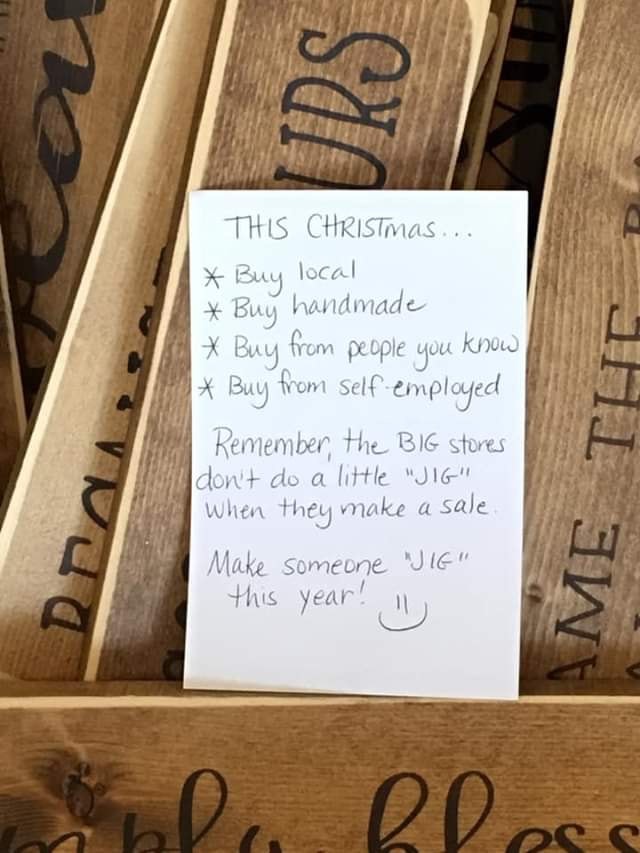 URS
THIS CHRISTmas...
* Buy local
* Buy handmade
* Buy from people you know
* Buy from self-employed
Remember, the BIG stores
don't do a little "JIG"
when they make a sale.
Make someone "JIG"
this year!
THE
AME